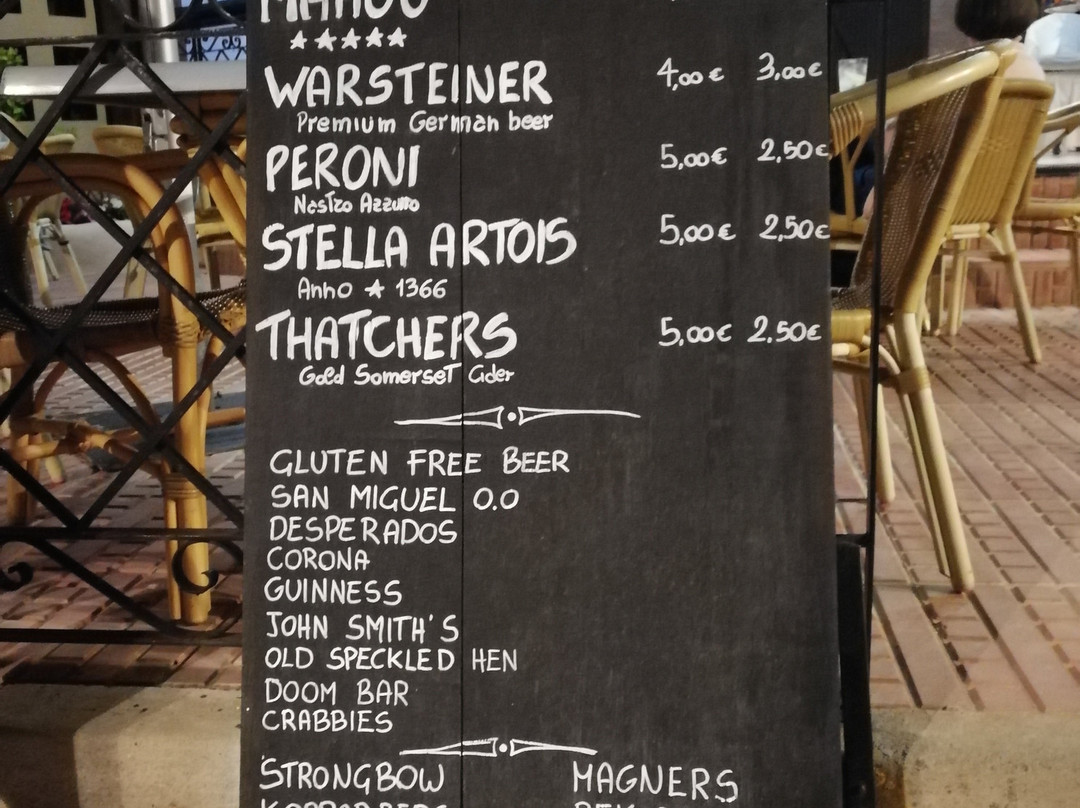 MAHOU
★★★★★
WARSTEINER 4,00€ 3,00€
Premium German beer
PERONI 5,00€ 2,50€
Nastro Azzurro
STELLA ARTOIS 5,00€ 2,50€
Anno ★ 1366
THATCHERS 5,00€ 2.50€
Gold Somerset Cider
GLUTEN FREE BEER
SAN MIGUEL 0.0
DESPERADOS
CORONA
GUINNESS
JOHN SMITH'S
OLD SPECKLED HEN
DOOM BAR
CRABBIES
STRONGBOW MAGNERS